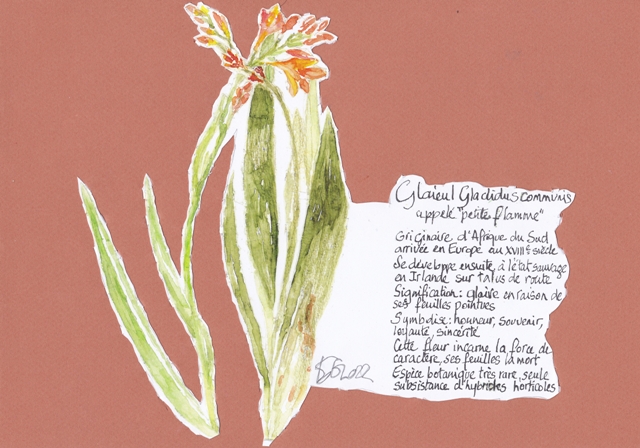 Glaïeul Gladidus communis
appelé "petite flamme"
Originaire d'Afrique du Sud
arrivée en Europe au XVIIIe siècle
Se développe ensuite, à l'état sauvage
en Irlande sur talus de route
Signification: glaive en raison de
ses feuilles pointues
Symbolise: honneur, souvenir,
loyauté, sincérité
Cette fleur incarne la force de
caractère, ses feuilles la mort
Espèce botanique très rare, seule
subsistance d'hybrides horticoles
2022